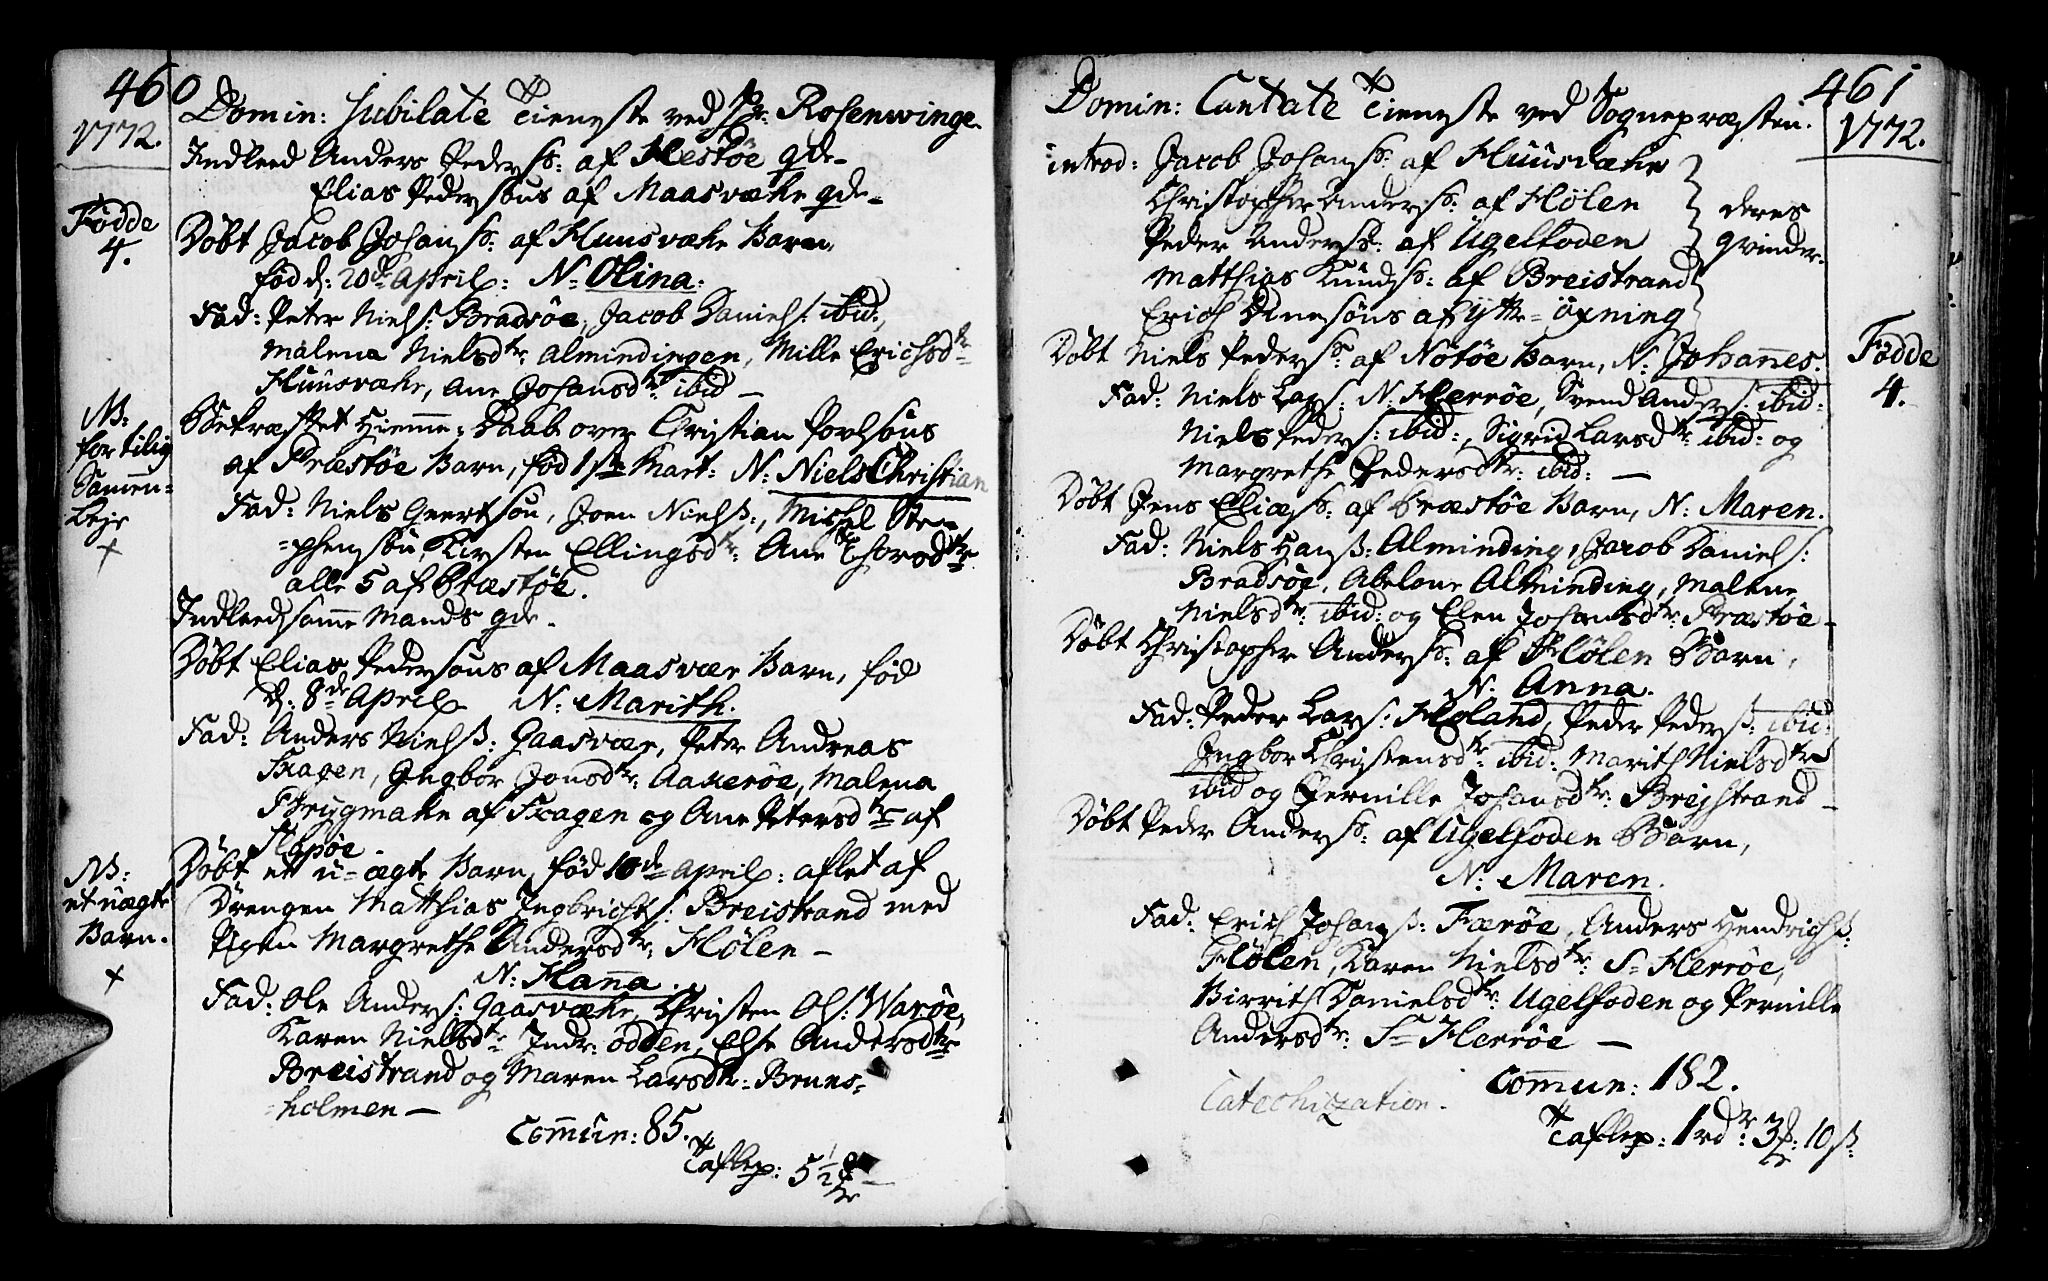 460
1772.
Domin: Jubilate Tieneste ved Hr: Rosenwinge.
Indleed Anders Peders: af Hestøe qde-
Elias Pedersøns af Maasvæhr qde-
Fødde
4.
Døbt Jacob Johans: af Huusvæhr Barn,
fød d: 20de April: N: Olina.
Fad: Peter Niels: Bradsøe, Jacob Daniels: ibid:,
Malena Nielsdtr: Almindingen, Mille Erichsdtr
Huusvæhr, Ane Johansdtr: ibid -
NB:
for tilig
Samen=
Leje
+
Bekræftet Hiemme=Daab over Christian Povlsøns
af Præstøe Barn, fød 1ste Mart: N: Niels Christian
Fad: Niels Geertsøn, Joen Niels:, Michel Ste-
phensøn, Kirsten Ellingsdtr: Ane Thorsdtr
alle 5 af Præstøe.
Indleed samme Mands qde.
Døbt Elias Pedersøns af Maasvær Barn, fød
d: 8de April N: Marith.
Fad: Anders Niels: Gaasvær, Peter Andreas
Skagen, Ingbor Jonsdtr: Aakerøe, Malena
Brygmahr af Skagen og Ane Petersdtr af
Slapøe.
NB:
et uægte
Barn.
+
Døbt et u-ægte Barn, fød 10de April: aflet af
Drengen Matthias Ingbrichts: Breistrand med
Pigen Margrethe Andersdtr: Hølen -
N: Hanna.
Fad: Ole Anders: Gaasvæhr, Christen Ols: Warøe,
Karen Nielsdtr Indr: odden, Else Andersdtr
Breistrand og Maren Larsdtr: Bruns=
=holmen -
Comun: 85.
Taflep: 5 1/2
461
1772.
Domin: Cantate Tieneste ved Sognepræsten.
introd: Jacob Johans: af Huusvæhr
Christopher Anders: af Hølen
Peder Anders: af Ugelfoden
Matthias Knuds: af Breistrand
Erich Dinesøns af Yttr=Øxning
deres
qvinder.
Fødde
4.
Døbt Niels Peders: af Nøtøe Barn, N: Johannes.
Fad: Niels Lars: N: Herrøe, Svend Anders: ibid:
Niels Peders: ibid:, Sigrid Larsdtr: ibid: og
Margrethe Pedersdtr: ibid: -
Døbt Jens Elies: af Præstøe Barn, N: Maren.
Fad: Niels Hans: Alminding, Jacob Daniels:
Bradsøe, Abelone Alminding, Malene
Nielsdtr: ibid: og Elen Johansdtr: Præstøe-
Døbt Christopher Anders: af Hølen Barn,
N: Anna.
Fad: Peder Lars: Høland, Peder Peders: ibid:
Ingbor Christensdtr: ibid: Marith Nielsdtr
ibid og Pernille Johansdtr: Brejstrand -
Døbt Peder Anders: af Ugelfoden Barn,
N: Maren.
Fad: Erich Johans: Færøe, Anders Hendrichs:
Hølen, Karen Nielsdtr: S= Herrøe,
Birrith Danielsdtr: Ugelfoden og Pernille
Andersdtr: S= Herrøe -
Comun: 182.
Catechization.
Taflep: 1rdr: 3 : 10ß: